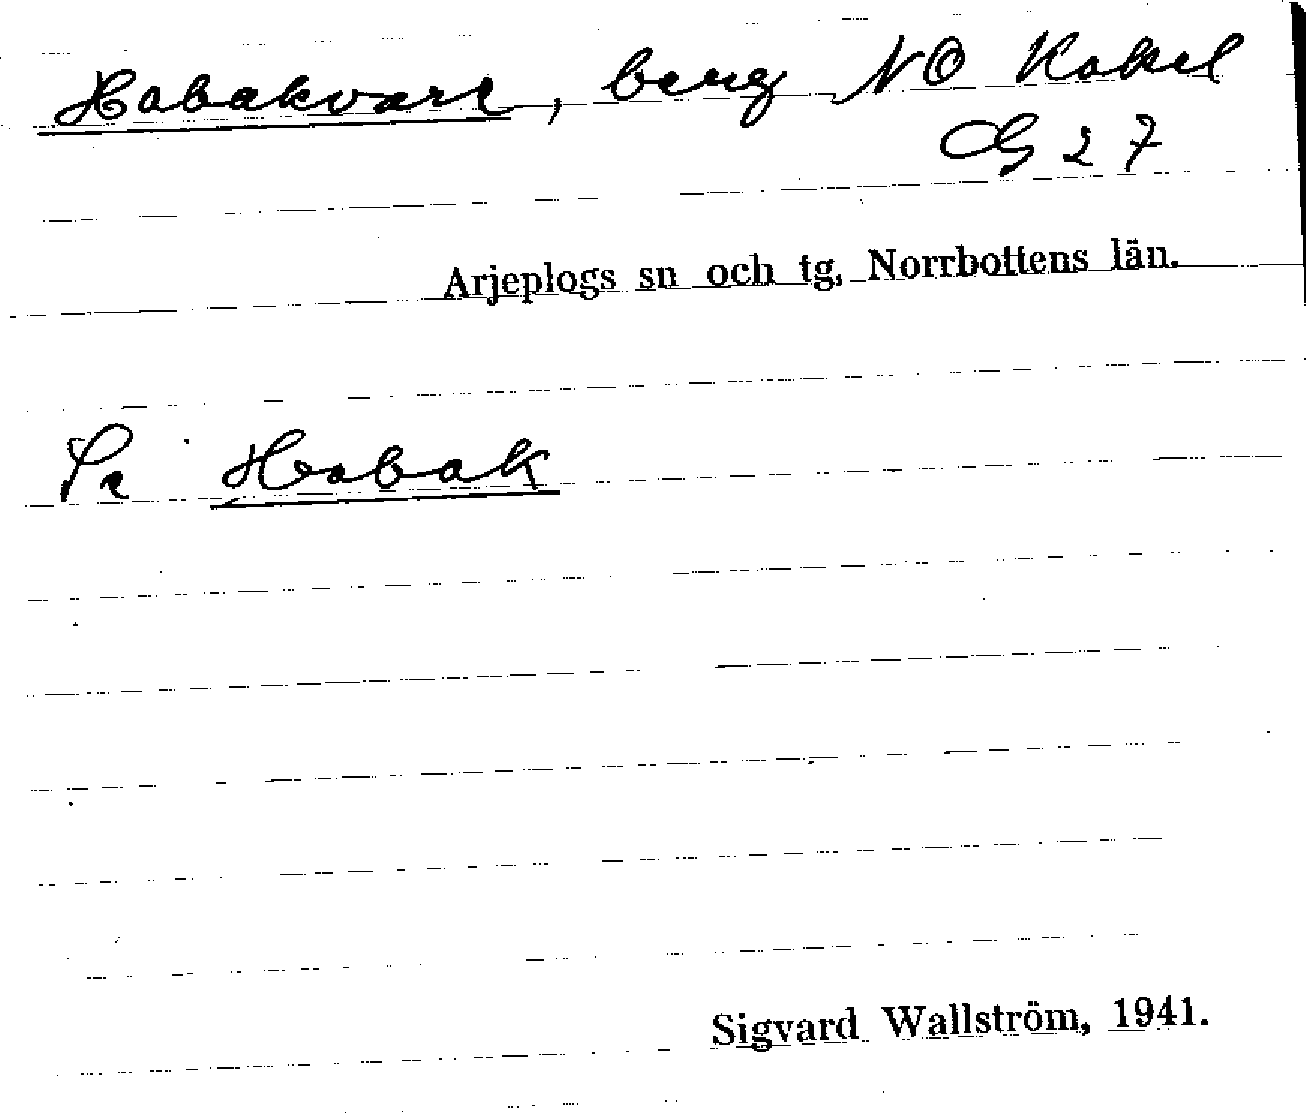 Habakvare, berg NO Kakel
G 27
Arjeplogs sn och tg, Norrbottens län.
Se Habak
Sigvard Wallström, 1941.